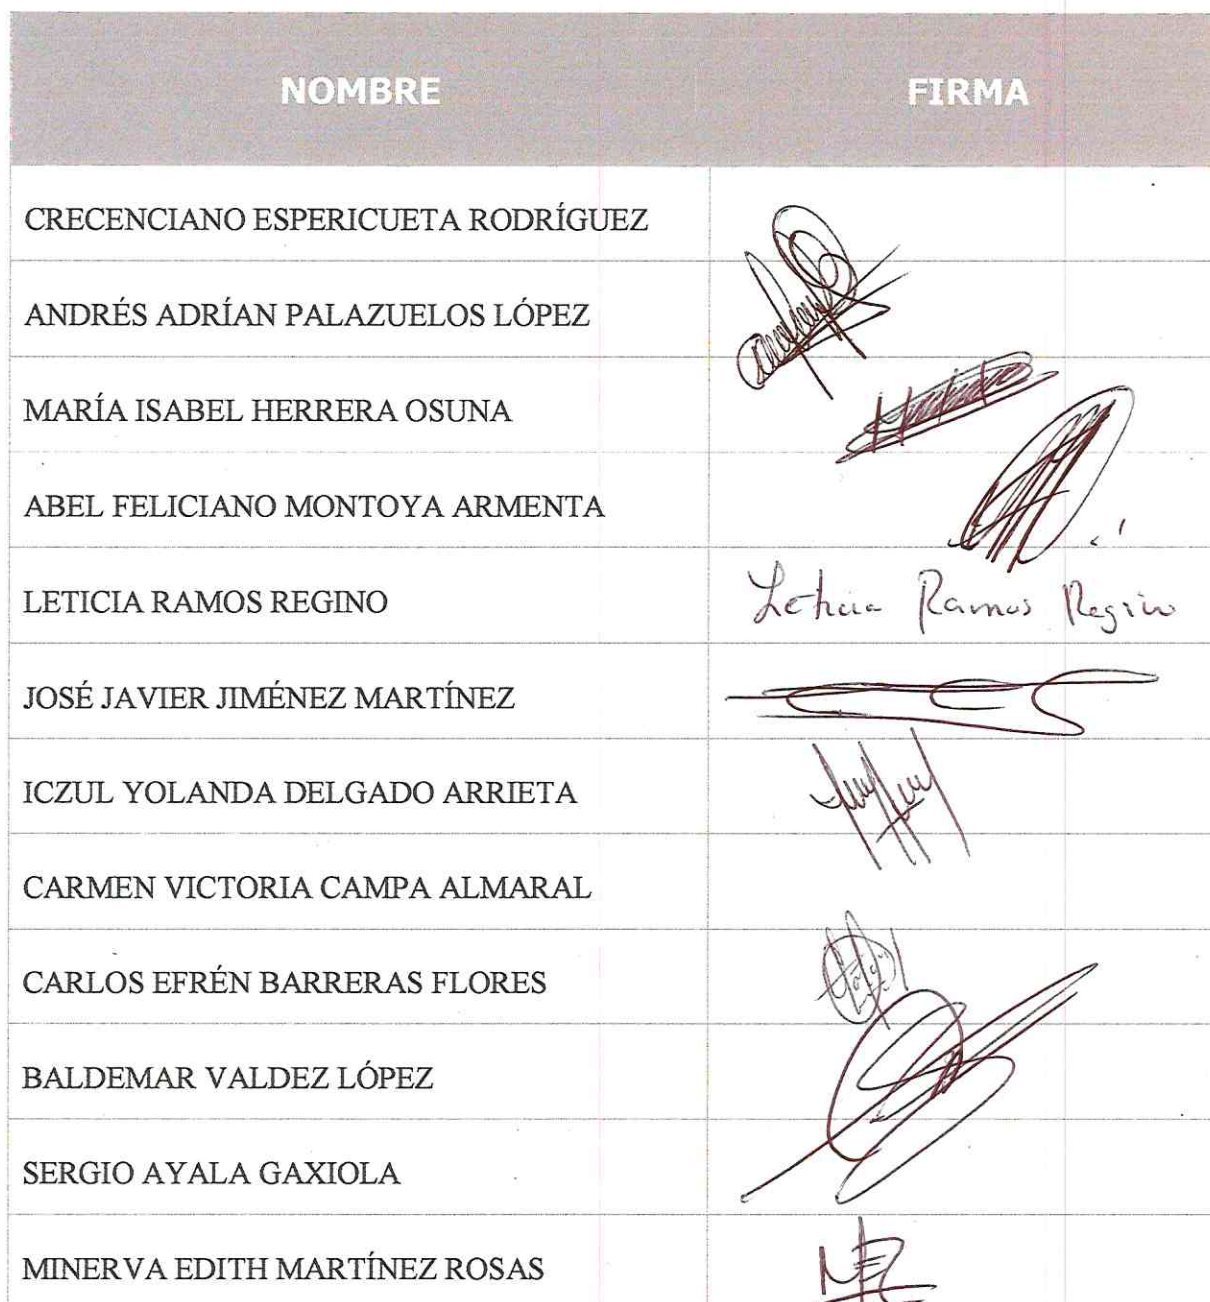 NOMBRE FIRMA
CRECENCIANO ESPERICUETA RODRÍGUEZ
ANDRÉS ADRÍAN PALAZUELOS LÓPEZ
MARÍA ISABEL HERRERA OSUNA
ABEL FELICIANO MONTOYA ARMENTA
LETICIA RAMOS REGINO Leticia Ramos Regino
JOSÉ JAVIER JIMÉNEZ MARTÍNEZ
ICZUL YOLANDA DELGADO ARRIETA
CARMEN VICTORIA CAMPA ALMARAL
CARLOS EFRÉN BARRERAS FLORES
BALDEMAR VALDEZ LÓPEZ
SERGIO AYALA GAXIOLA
MINERVA EDITH MARTÍNEZ ROSAS